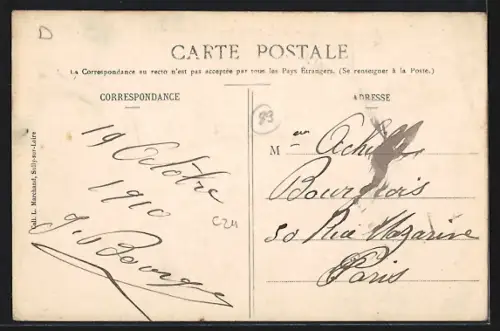 D
CARTE POSTALE
La Correspondance au recto n'est pas acceptée par tous les Pays Étrangers. (Se renseigner à la Poste.)
CORRESPONDANCE
ADRESSE
93
19 Octobre
1910
C24
J. Bourgeois
Mme Achille
Bourgeois
50 Rue Mazarine
Paris
Coll. L. Marchand, Sully-sur-Loire